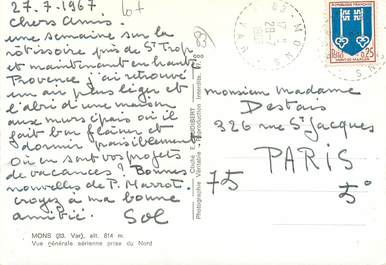 27.7.1967
107
chers Amis.
une semaine sur la
rôtissoire près de St Trop
et maintenant en haute
Provence j'ai retrouvé
un air plus léger et
l'abri d'une maison
aux murs épais où il
fait bon flâner et
dormir paisiblement
Où en sont vos projets
de vacances? Bonnes
nouvelles de P. Marrot.
croyez à ma bonne
amitié.
Sol
MONS (83. Var), alt. 814 m.
Vue générale aérienne prise du Nord
83
Photographie Véritable - Reproduction Interdite.
MONS
VAR
REPUBLIQUE FRANÇAISE
0,25
MONT-DE-MARSAN
monsieur madame
Destais
326 rue St Jacques
PARIS
75
5°